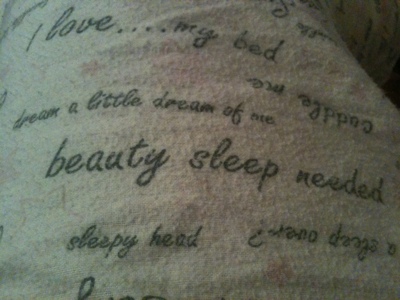 I love....my bed
cuddle me
dream a little dream of me
beauty sleep needed
a sleep over?
sleepy head